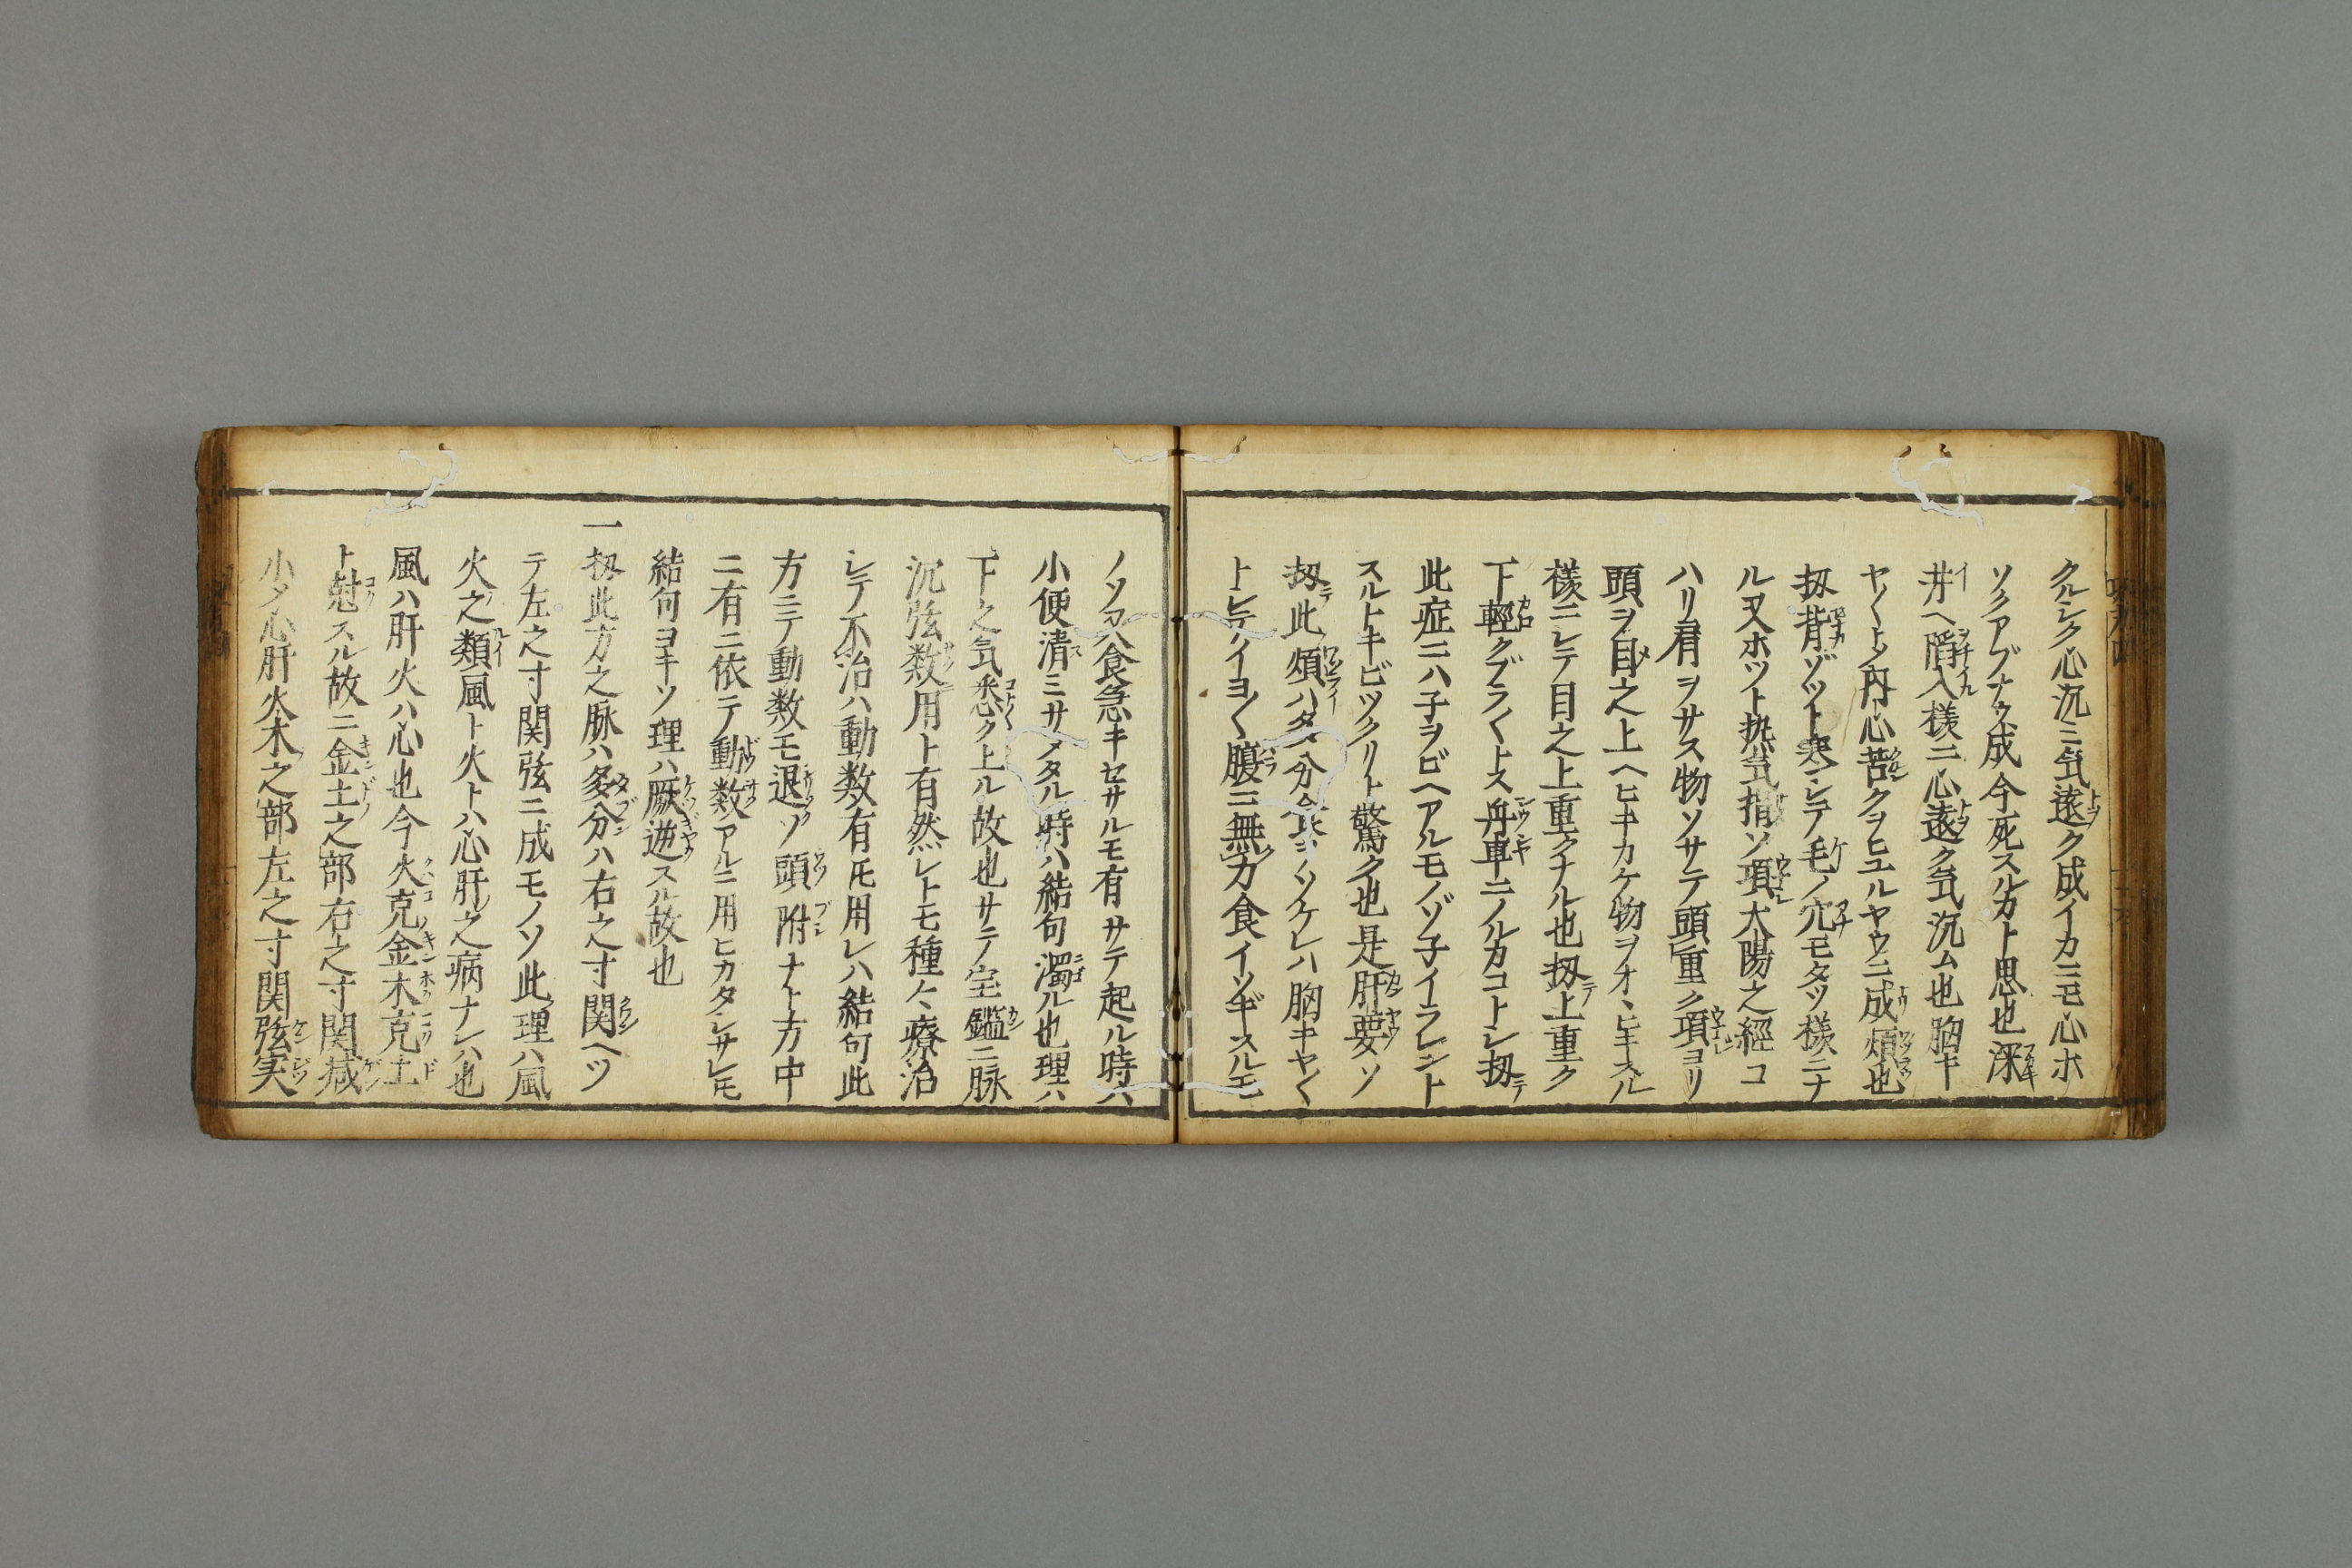 クルシク心沉ミ気遠ク成イカニモ心ホ
ソクアブナウ成今死スルカト思也深
井ヘ陷入様ニ心遠ク気沉ム也胸キ
ヤ〱ト〆内心苦クヲヒユルヤウニ成煩也
扨背ゾツト寒シテ毛ノ穴モタツ様ニナ
ル又ホツト热気指ソ項太陽之經コ
ハリ肩ヲサス物ソサテ頭重ク項ヨリ
頭ヲ目之上ヘヒキカケ物ヲオヽヒキスル
様ニシテ目之上重クナル也扨上重ク
下輕クブラ〱トス舟車ニノルカコトシ扨
此症ニハ子ヲビヘアルモノゾ子イラレント
スルトキビツクリト驚ク也是肝要ソ
扨此煩ハ多分食ニツケレハ胸キヤ〱
トシテイヨ〱腹ニ無力食イソギスルモ
ノソ又食急キセサルモ有サテ起ル時ハ
小便清ミサメタル時ハ結句濁ル也理ハ
下之気悉ク上ル故也サテ宝鑑ニ脉
沉弦数用ト有然レトモ種々療治
シテ不治ハ動数有𪜈用レハ結句此
方ニテ動数モ退ソ頭附ナト方中
ニ有ニ依テ動数アルニ用ヒカタシサレ𪜈
結句ヨキソ理ハ厥逆スル故也
一扨此方之脉ハ多分ハ右之寸関ヘツ
テ左之寸関弦ニ成モノソ此理ハ風
火之類風ト火トハ心肝之病ナレハ也
風ハ肝火ハ心也今火克金木克土
ト尅スル故ニ金土之部右之寸関減
小〆心肝火木之部左之寸関弦実